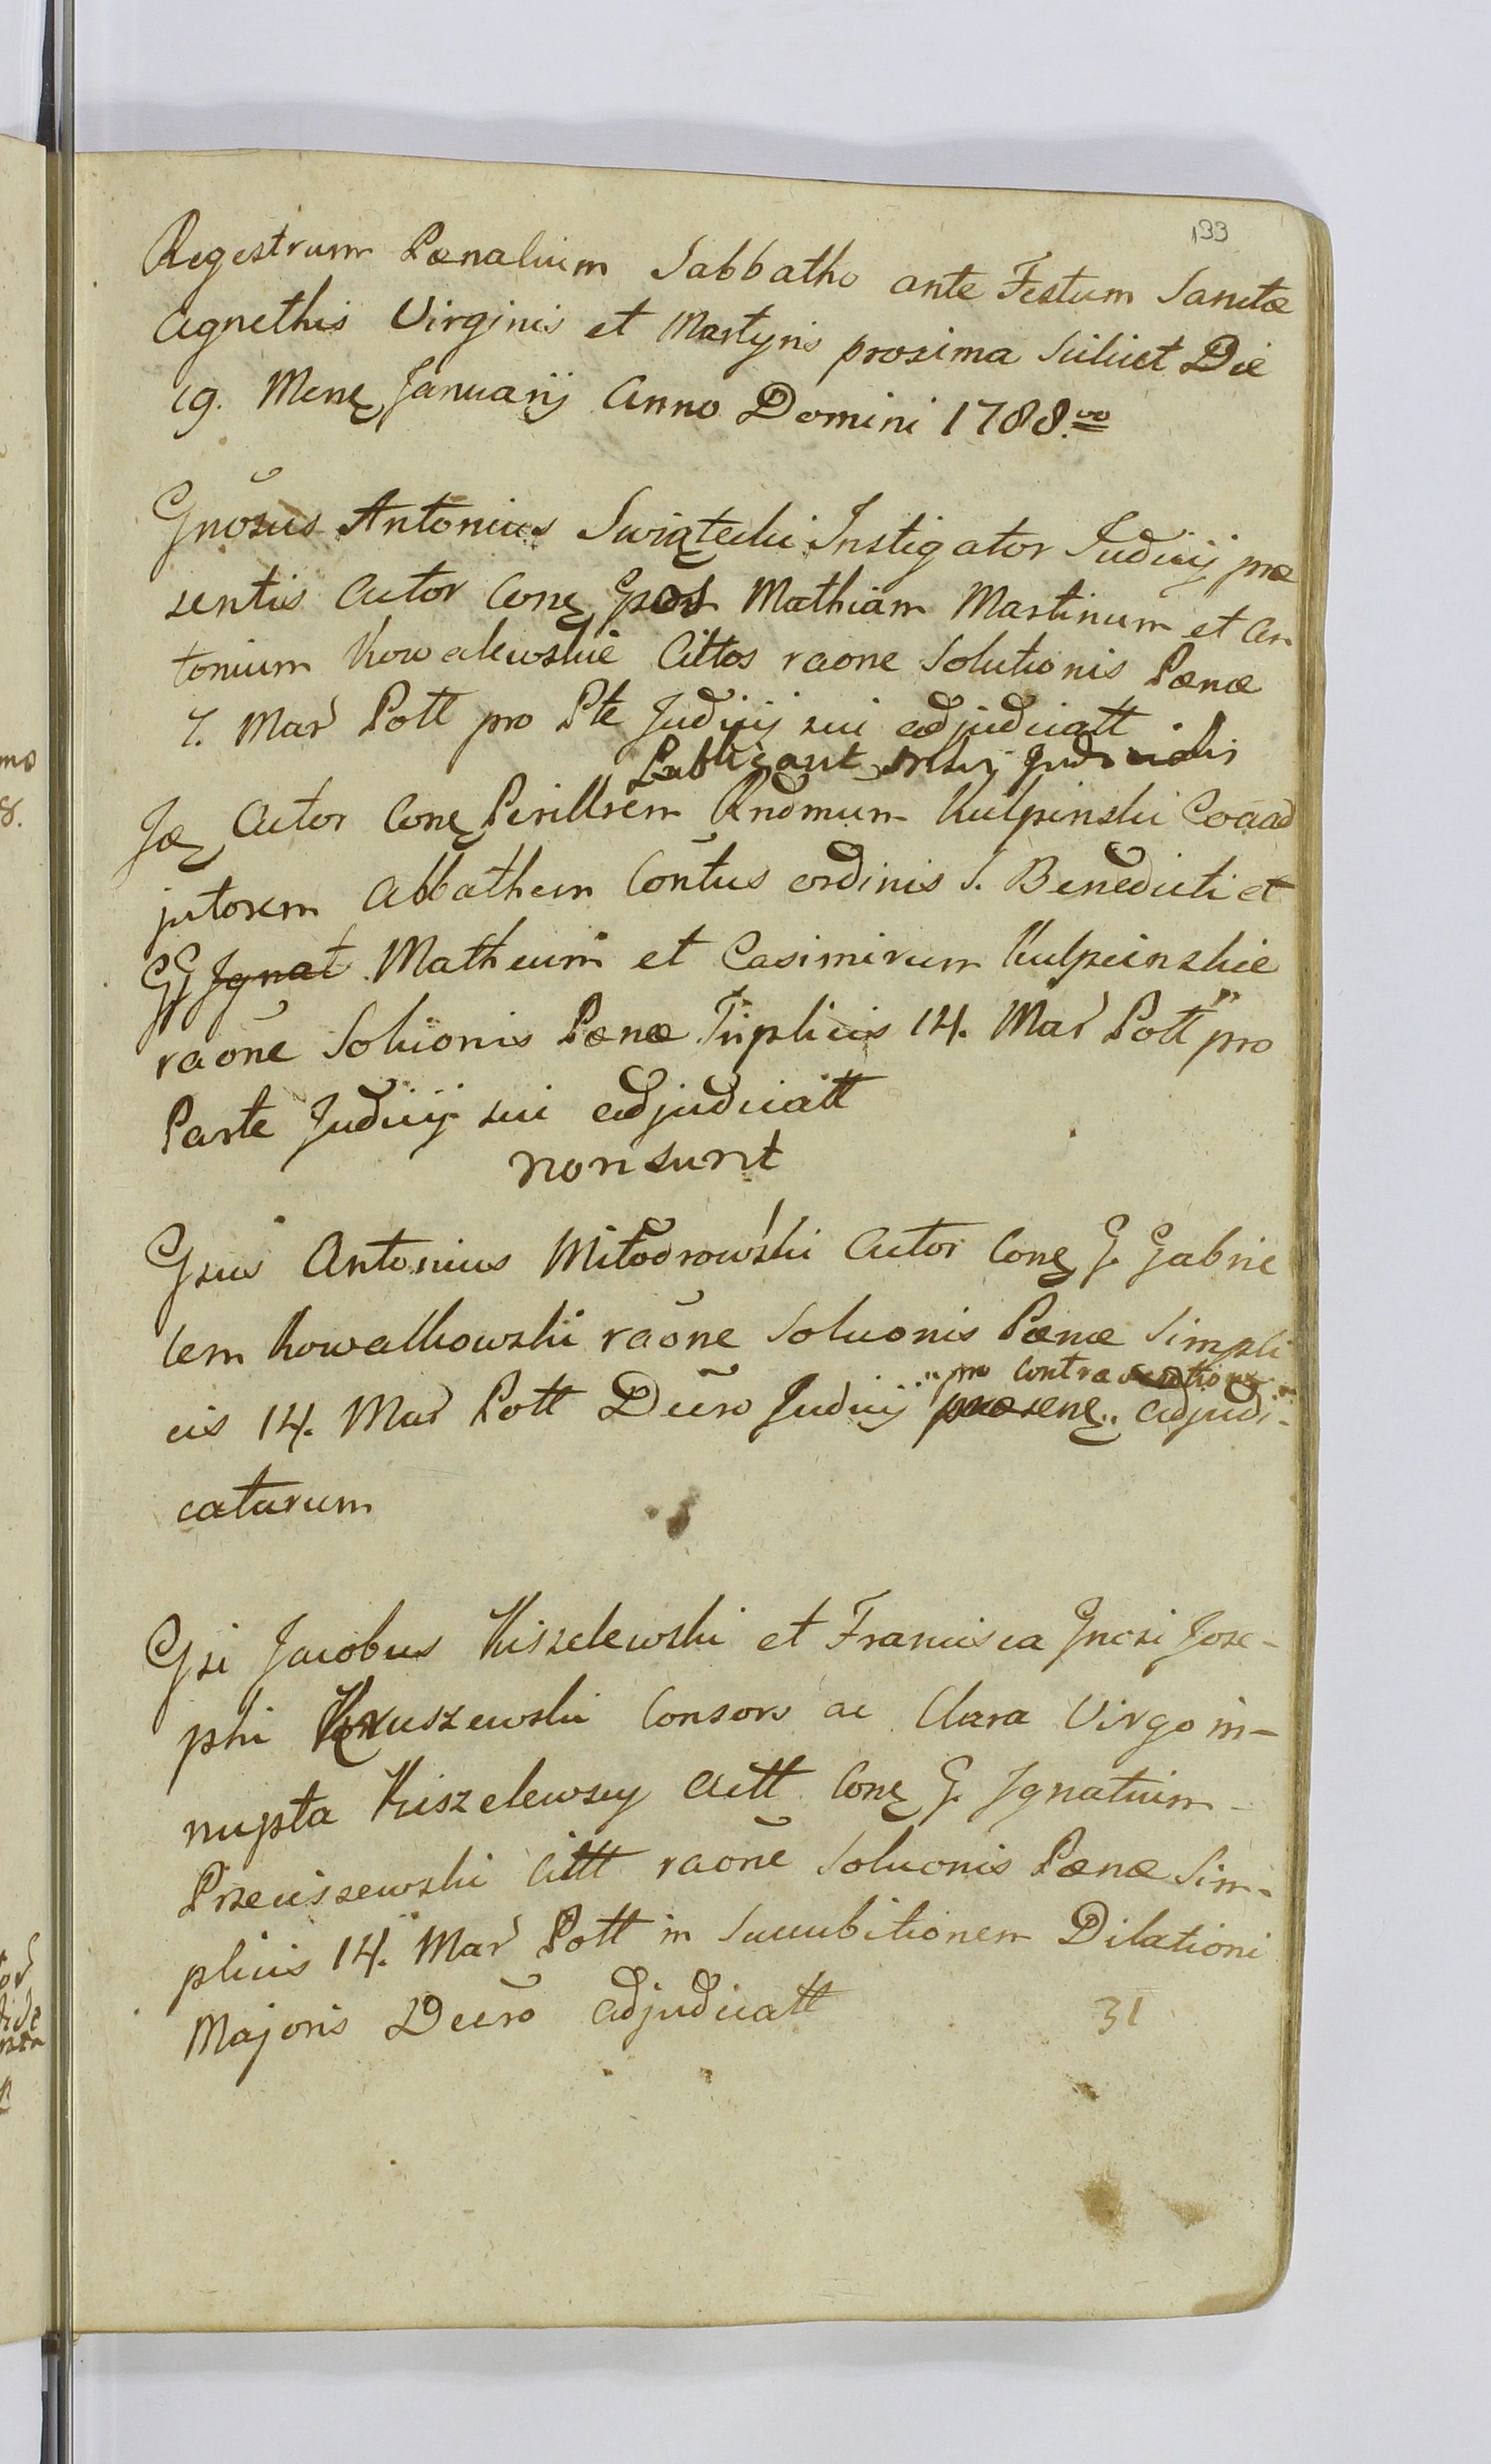 133
Regestrum Pœnalium Sabbatho ante Festum Sanctæ
Agnethis Virginis et Martyris proxima scilicet Die
19. Menẹ Januarij Anno Domini 1788.vo
Gnõsus Antonius Swiątecki Instigator Judicij præ
sentis Actor Conẹ Gsos Mathiam Martinum et An
tonium Kowalewskie Cittos raone Solutionis Pœnæ
7. Mar Poll pro Pte Judicij sui adjudicatt
Publicant
Jdẹ Actor Conẹ Perillrem Rndmum Kulpinski Coaad
jutorem Abbathem Contus ordinis S. Benedicti et
GG Ignat Matheum et Casimirum Kulpinskie
raõne Soluonis Pœnæ Triplicis 14. Mar Poll pro
Parte Judicij sui adjudicatt
non sunt
Gsus Antonius Miłodrowski Actor Conẹ G. Gabrie
lem Kowalkowski raõne Soluonis Pœnæ Simpli
pro Contraventione
cis 14. Mar Poll Decro Judicij præsenẹ adjudi-
catarum
Gsi Jacobus Kiszelewski et Francisca Gnosi Jose-
phi Kruszewski Consors ac Clara Virgo in-
nupta Kiszelewscy Actt Conẹ G. Ignatium
Przeciszewski Citt raõne Soluonis Pœnæ Sim-
plicis 14. Mar Poll in Succubitionem Dilationi
Majoris Decro adjudicatt
31